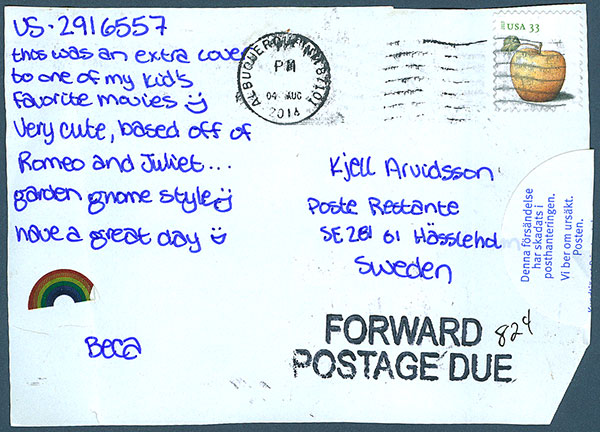 US-2916557
this was an extra cover
to one of my kid's
favorite movies
Very cute, based off of
Romeo and Juliet...
garden gnome style
have a great day
Beca
ALBUQUERQUE NM 87101
PM
04 AUG
2014
USA 33
Kjell Arvidsson
Poste Restante
SE 281 61 Hässleho
Sweden
Denna försändelse
har skadats i
posthanteringen.
Vi ber om ursäkt.
Posten.
FORWARD
POSTAGE DUE
824